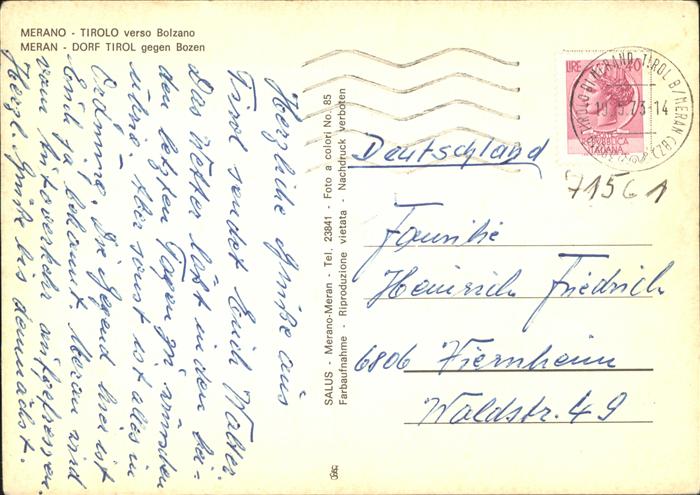 MERANO - TIROLO verso Bolzano
MERAN - DORF TIROL gegen Bozen
Herzliche Grüße aus
Tirol sendet Euch Walter
Das Wetter läßt in den bei-
den letzten Tagen zu wünschen
übrig. Aber sonst ist alles in
Ordnung. Die Gegend hier ist
Euch ja bekannt. Meran wird
vom Autoverkehr aufgefressen.
Herzl. Grüße bis demnächst.
SALUS - Merano-Meran - Tel. 23841 - Foto a colori No. 85
Farbaufnahme - Riproduzione vietata - Nachdruck verboten
LIRE 40
REPUBBLICA
ITALIANA
TIROLO DI MERANO TIROL B/MERAN (BZ)
19.5.73-14
Deutschland
71561
Familie
Heinrich Friedrich
6806 Viernheim
Waldstr. 49